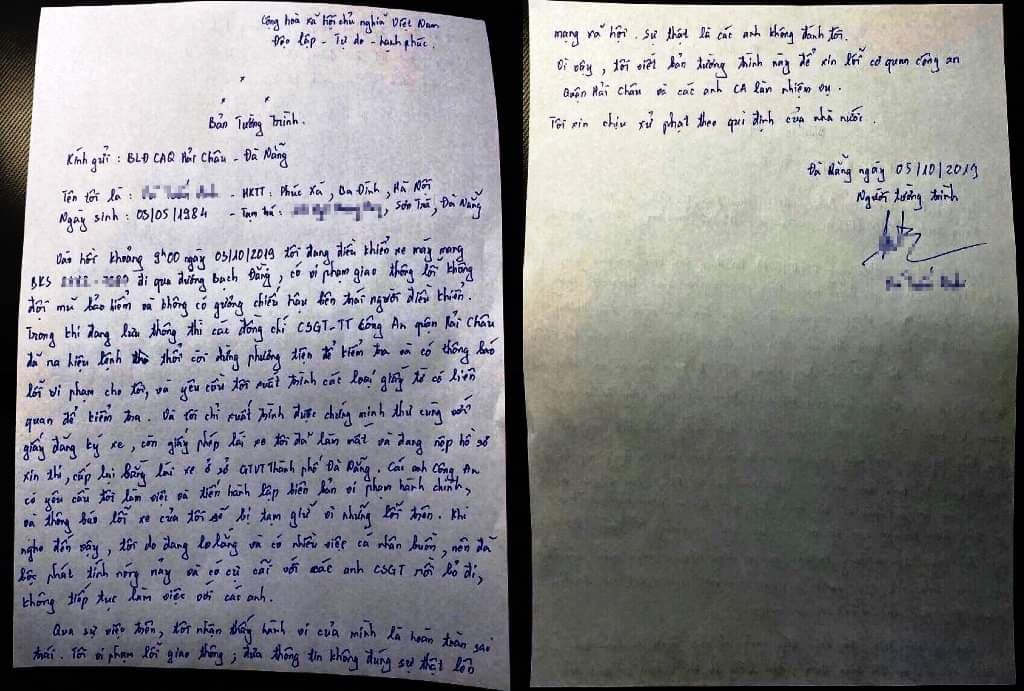 Cộng hoà xã hội chủ nghĩa Việt Nam
Độc lập - Tự do - hạnh phúc.
Bản Tường Trình.
Kính gửi : BLĐ CAQ Hải Châu - Đà Nẵng
Tên tôi là : - HKTT : Phúc Xá, Ba Đình, Hà Nội
Ngày sinh : 03/05/1984 - Tạm trú : , Sơn Trà, Đà Nẵng
Vào hồi khoảng 9h00 ngày 03/10/2019 tôi đang điều khiển xe máy mang
BKS đi qua đường Bạch Đằng, có vi phạm giao thông lỗi không
đội mũ bảo hiểm và không có gương chiếu hậu bên trái người điều khiển.
Trong khi đang lưu thông thì các đồng chí CSGT-TT Công An quận Hải Châu
đã ra hiệu lệnh thổi còi dừng phương tiện để kiểm tra và có thông báo
lỗi vi phạm cho tôi, và yêu cầu tôi xuất trình các loại giấy tờ có liên
quan để kiểm tra. Và tôi chỉ xuất trình được chứng minh thư cùng với
giấy đăng ký xe, còn giấy phép lái xe tôi đã làm mất và đang nộp hồ sơ
xin thi, cấp lại bằng lái xe ở sở GTVT Thành phố Đà Nẵng. Các anh Công An
có yêu cầu tôi làm việc và tiến hành lập biên bản vi phạm hành chính,
và thông báo lỗi xe của tôi sẽ bị tạm giữ vì những lỗi trên. Khi
nghe đến vậy, tôi do đang lo lắng và có nhiều việc cá nhân buồn, nên đã
bộc phát tính nóng nảy và có cự cãi với các anh CSGT rồi bỏ đi,
không tiếp tục làm việc với các anh.
Qua sự việc trên, tôi nhận thấy hành vi của mình là hoàn toàn sai
trái. Tôi vi phạm lỗi giao thông ; đưa thông tin không đúng sự thật lên
mạng xã hội. Sự thật là các anh không đánh tôi.
Vì vậy, tôi viết bản tường trình này để xin lỗi cơ quan công an
Quận Hải Châu và các anh CA làm nhiệm vụ.
Tôi xin chịu xử phạt theo qui định của nhà nước.
Đà Nẵng ngày 05/10/2019
Người tường trình